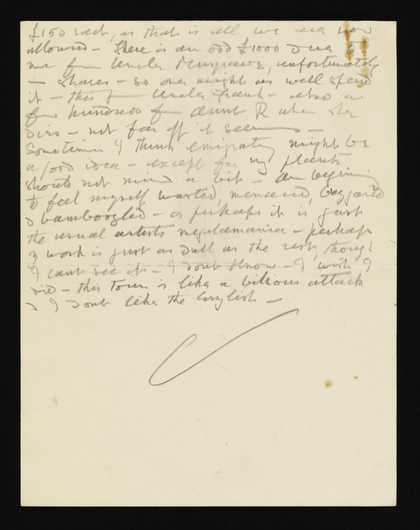 £150 each, as that is all we are now
allowed – there is an odd £1000 due to
me from Uncle unfortunately
– shares – so one might as well spend
it – this from Uncle Frank – also a
few hundreds from Aunt R when she
dies – not far off it seems –
Sometimes I think emigrating might be
a good idea – except for my plants
should not mind a bit – am beginning
to feel myself wasted, menaced, beggared
& bamboozled – or perhaps it is just
the usual artists megalomania – perhaps
my work is just as dull as the rest, though
I cant see it – I dont know – I wish I
did – this town is like a bilious attack
& I dont like the English –